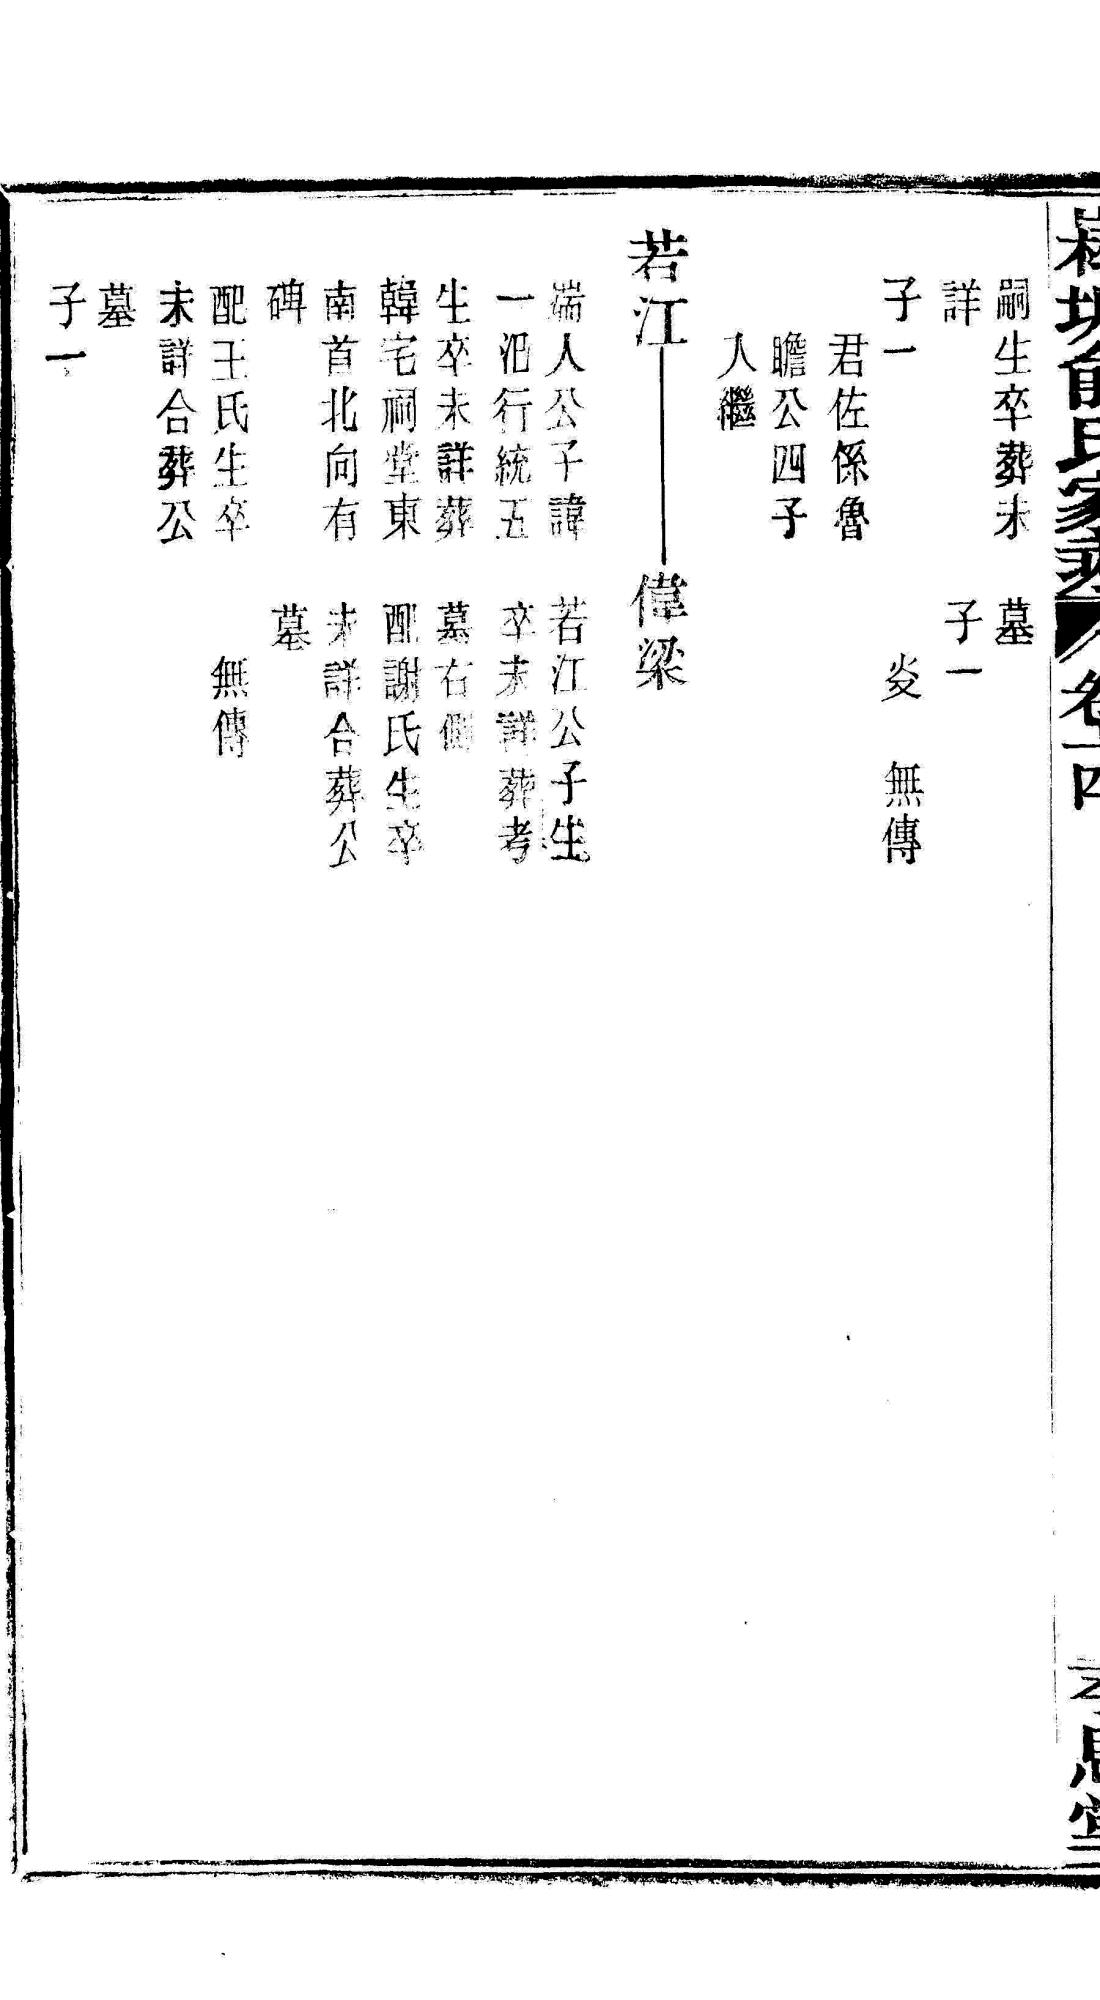 俞氏家乘 卷十四
思堂
嗣生卒葬未
詳
子一
君佐係魯
瞻公四子
人繼
墓
子一
炎 無傳
若江
偉梁
端人公子諱
一汜行統五
生卒未詳葬
韓宅祠堂東
南首北向有
碑
配王氏生卒
未詳合葬公
墓
子一
若江公子生
卒未詳葬考
墓右側
配謝氏生卒
未詳合葬公
墓
無傳